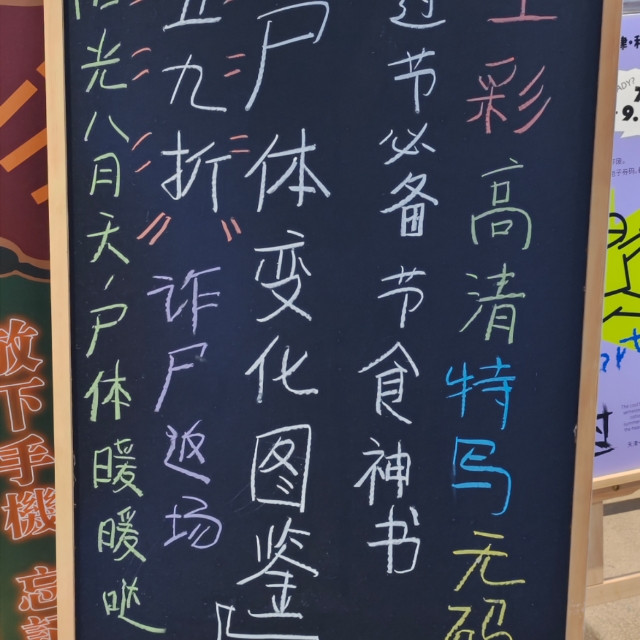 全彩高清特写无码
过节必备节食神书
尸体变化图鉴
五九折
诈尸返场
阳光八月天，尸体暖暖哒
放下手機